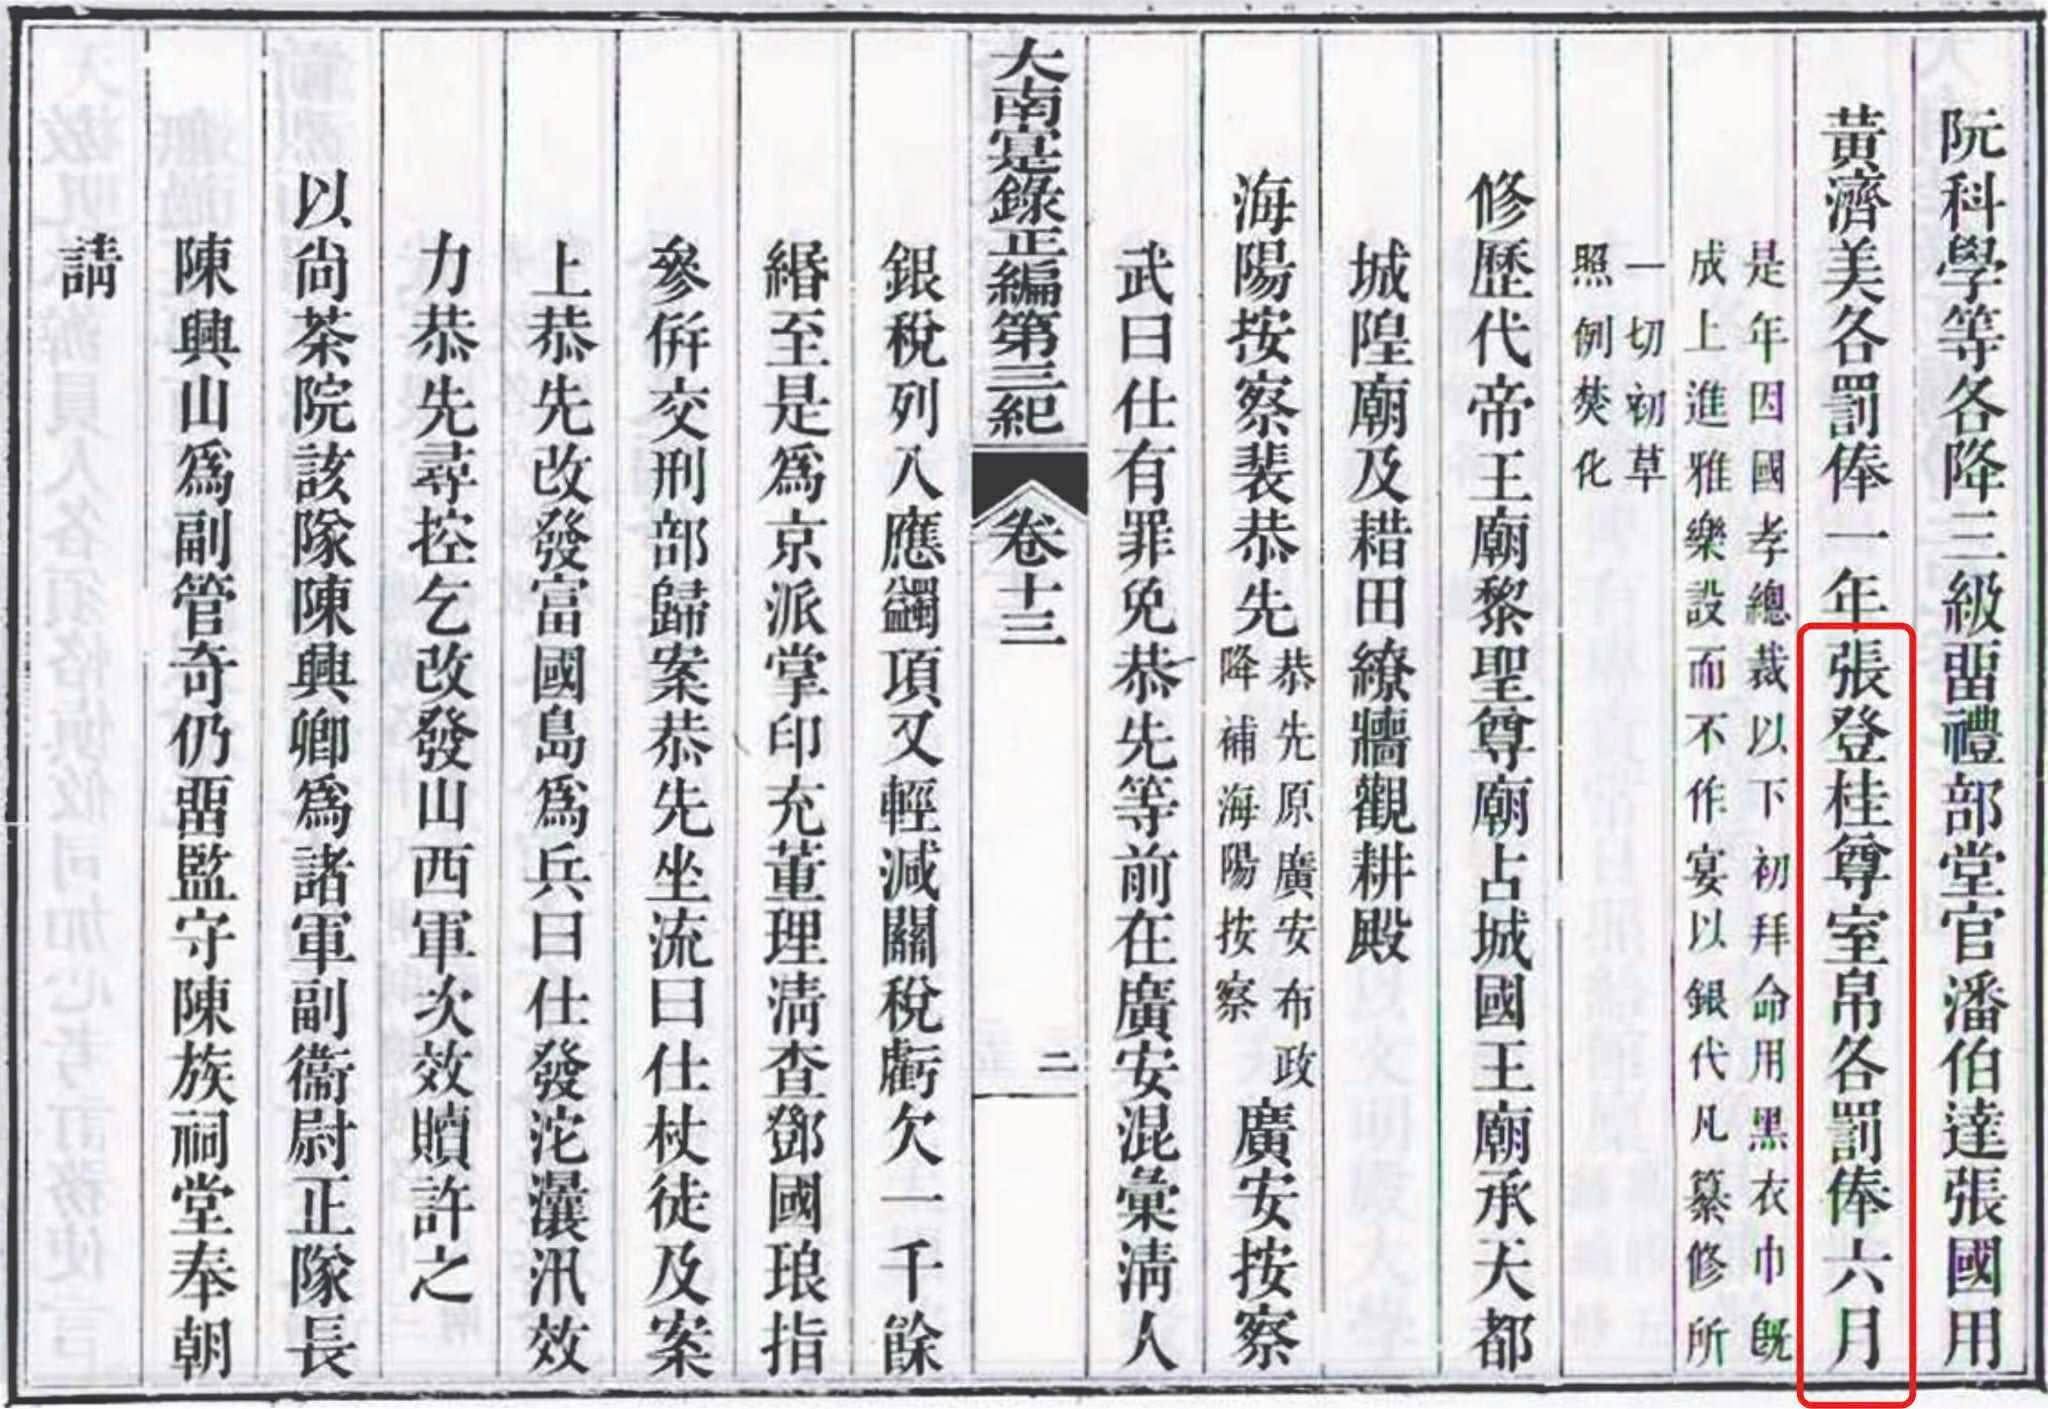 阮科學等各降三級畱禮部堂官潘伯達張國用
黃濟美各罰俸一年張登桂尊室帛各罰俸六月
是年因國孝總裁以下初拜命用黑衣巾旣
成上進雅樂設而不作宴以銀代凡纂修所
一切初草
照例焚化
修歷代帝王廟黎聖尊廟占城國王廟承天都
城隍廟及耤田繚牆觀耕殿
海陽按察裴恭先
恭先原廣安布政
降補海陽按察
廣安按察
武曰仕有罪免恭先等前在廣安混彙淸人
大南寔錄正編第三紀
卷十三
二
銀稅列入應蠲項又輕減關稅虧欠一千餘
緡至是爲京派掌印充董理淸查鄧國琅指
參倂交刑部歸案恭先坐流曰仕杖徒及案
上恭先改發富國島爲兵曰仕發沱灢汛效
力恭先尋控乞改發山西軍次效贖許之
以尙茶院該隊陳興卿爲諸軍副衞尉正隊長
陳興山爲副管奇仍畱監守陳族祠堂奉朝
請